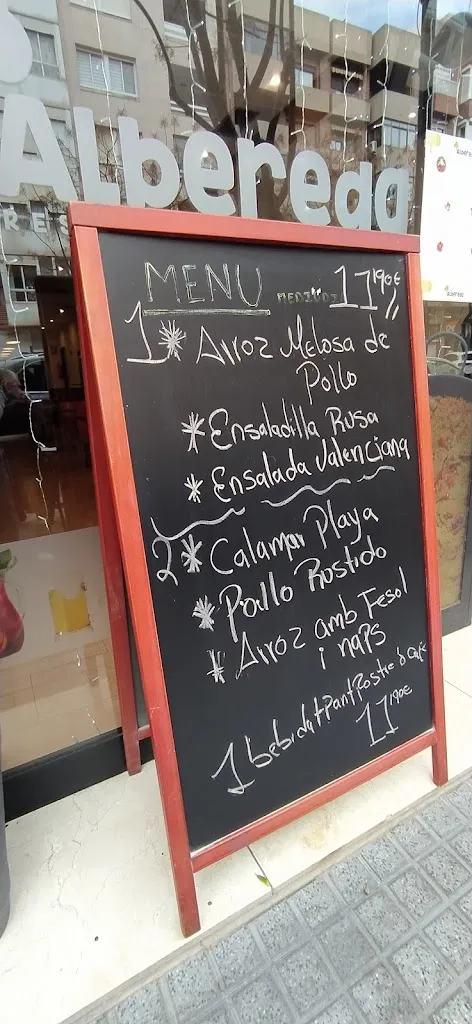 Albereda
RES
MENU MEDIODI 11'90€
1 * Arroz Melosa de
Pollo
* Ensaladilla Rusa
* Ensalada Valenciana
2 * Calamar Playa
* Pollo Rostido
* Arroz amb Fesol
i naps
1 bebida + Pan + Postre ó Cafe
11'90€